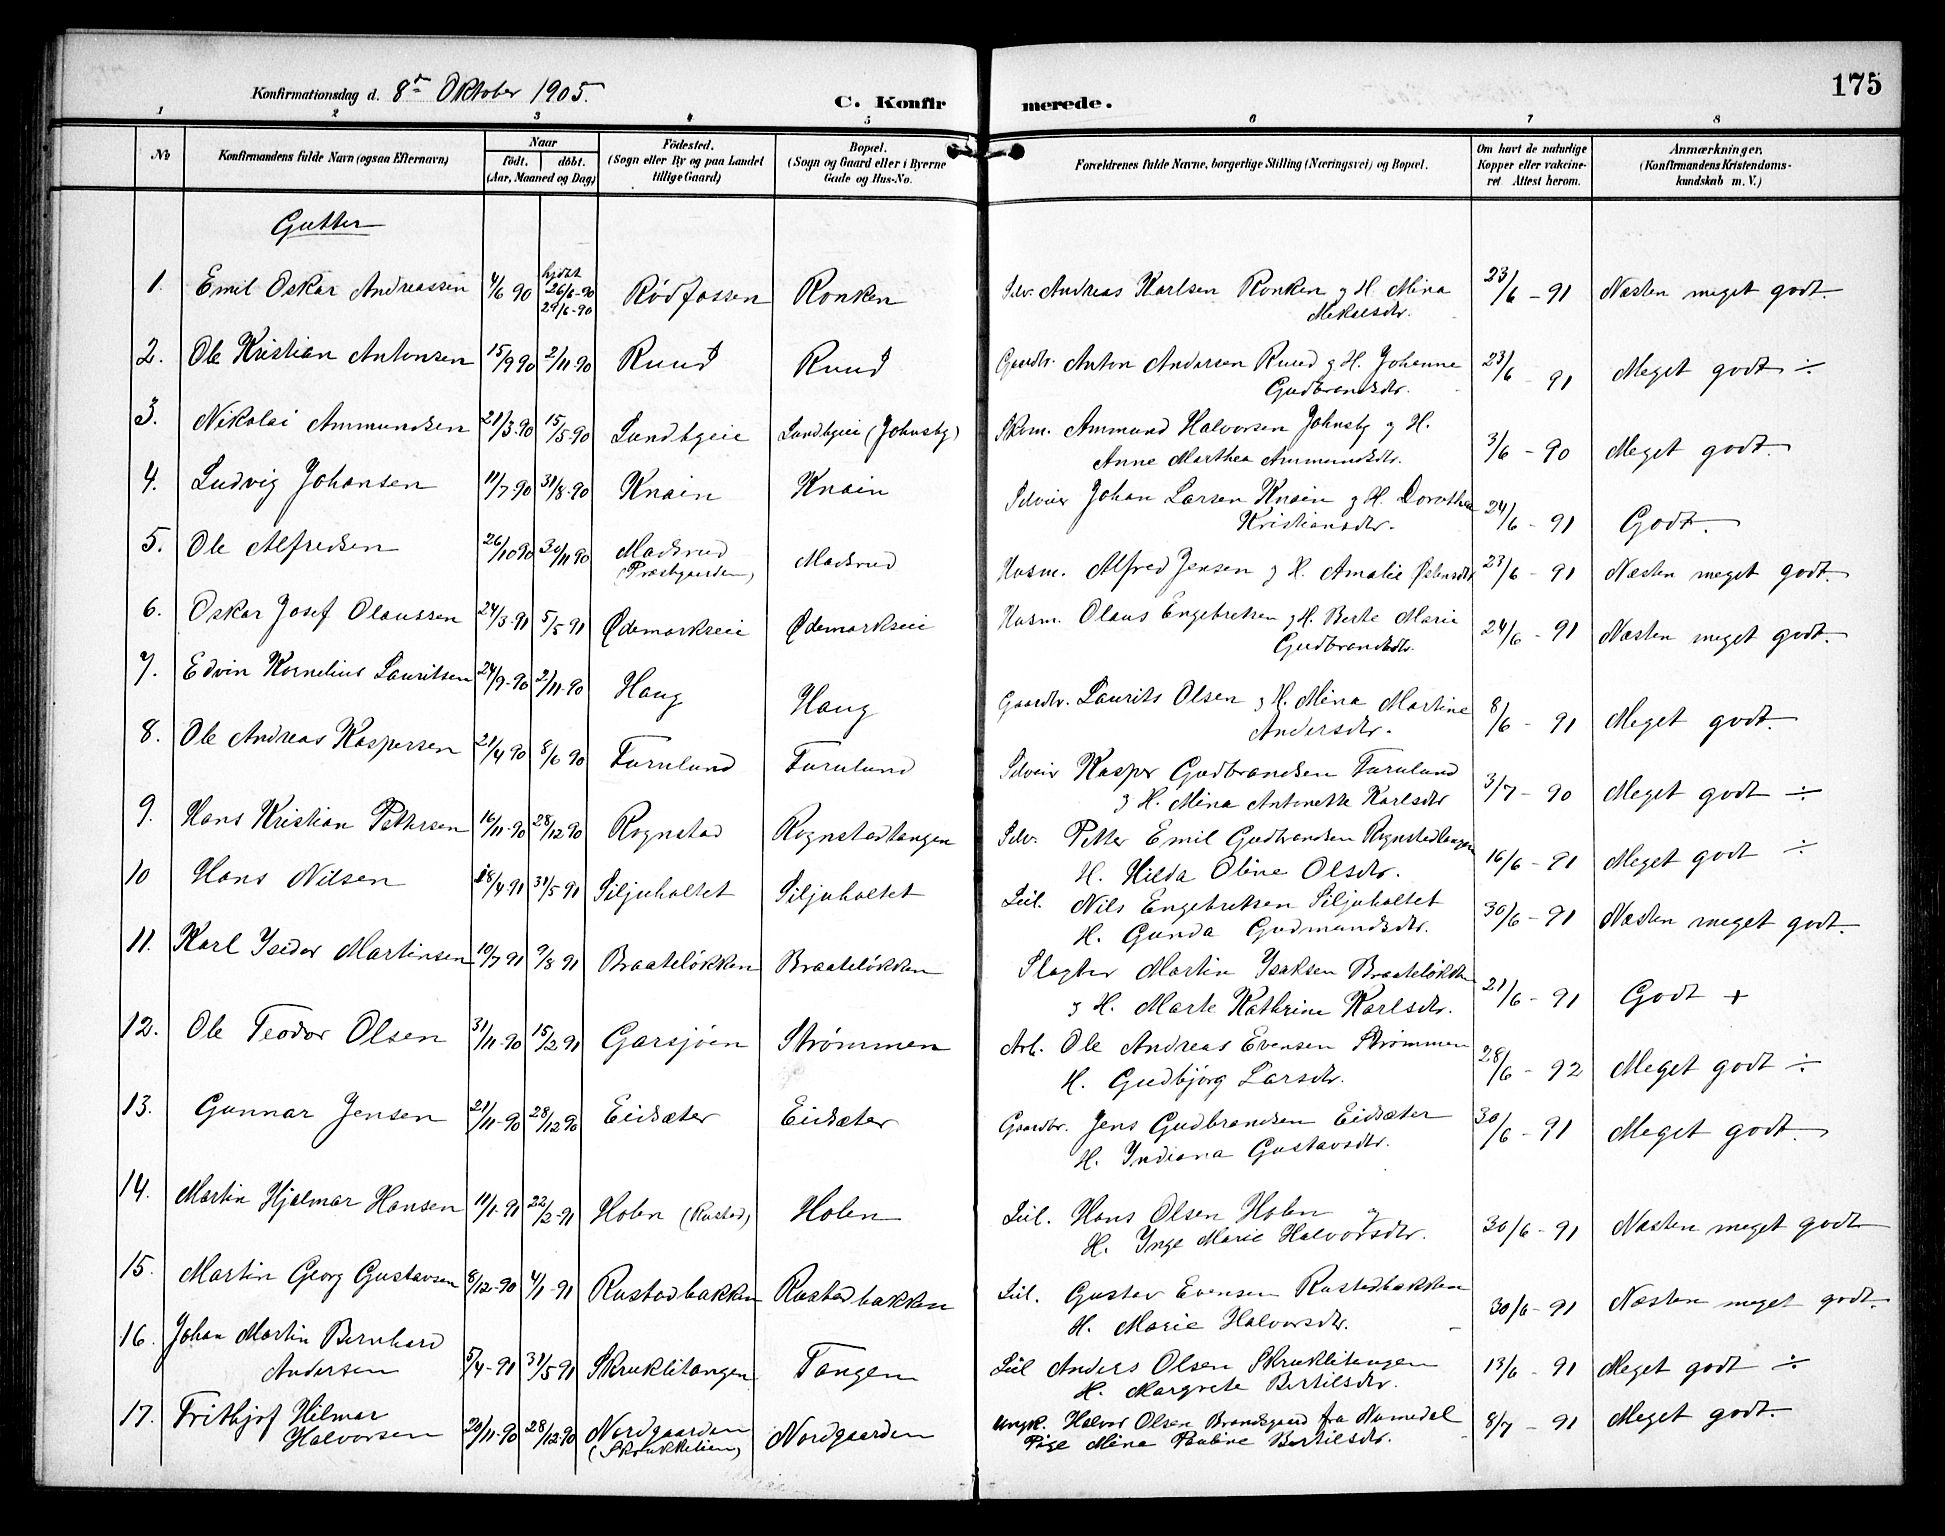 175
Konfirmationsdag d. 8de Oktober 1905.
C. Konfirmerede.
1 2 3 4 5 6 7 8
No
Konfirmandens fulde Navn (ogsaa Efternavn)
Naar
født. døbt.
(Aar, Maaned og Dag)
Fødested.
(Sogn eller By og paa Landet
tillige Gaard)
Bopæl.
(Sogn og Gaard eller i Byerne
Gade og Hus-No.
Forældrenes fulde Navne, borgerlige Stilling (Næringsvei) og Bopæl.
Om havt de naturlige
Kopper eller vakcine-
ret Attest herom.
Anmærkninger,
(Konfirmandens Kristendoms-
kundskab m. V.)
Gutter
1. Emil Oskar Andreassen 4/6 90 hjdbt 26/6-90 29/6-90 Rødfossen Ronken Selv. Andreas Karlsen Ronken g H. Mina 23/6 - 91 Næsten meget godt.
Mekelsdtr.
2. Ole Kristian Antonsen 15/9 90 2/11-90 Ruud Ruud Gaardbr. Anton Andersen Ruud g H. Johanne 23/6 - 91 Meget godt ÷
Gudbrandsdtr.
3. Nikolai Ammundsen 21/3-90 15/5-90 Lundbyeie Lundbyeie (Johnsby) Skom. Ammund Halvorsen Johnsby g H. 3/6 - 90 Meget godt.
Anne Marthea Ammundsdtr.
4. Ludvig Johansen 11/7-90 31/8-90 Knain Knain Selveier Johan Larsen Knain g H. Dorothea 24/6 - 91 Godt.
Kristiansdtr.
5. Ole Alfredsen 26/10 90 30/11 90 Madsrud Madsrud Husm. Alfred Jensen g H. Amalie 23/6 - 91 Næsten meget godt.
(Præstgaarden)
6. Oskar Josef Olaussen 24/3-91 5/5-91 Ødemarkseie Ødemarkseie Husm. Olaus Engebretsen g H. Berte Marie 24/6 - 91 Næsten meget godt.
Gudbrandsdtr.
7. Edvin Kornelius Lauritsen 24/9-90 2/11-90 Haug Haug Gaardbr. Laurits Olsen g H. Mina Martine 8/6 - 91 Meget godt.
Andersdtr.
8. Ole Andreas Kaspersen 21/4 90 8/6 90 Furulund Furulund Selveier Kasper Gudbrandsen Furulund 3/7 - 90 Meget godt ÷
g H. Mina Antonette Karlsdtr
9. Hans Kristian Pettersen 16/11-90 28/12 90 Rognstad Rognstadtangen Selv. Petter Emil Gudbrandsen Rognstadtangen 16/6 - 91 Meget godt ÷
H. Hilda Oline Olsdtr.
10 Hans Nilsen 18/4-91 31/5 91 Siljuholtet Siljuholtet Leil. Nils Engebretsen Siljuholtet 30/6 - 91 Næsten meget godt.
H. Gunda Gudmundsdtr.
11. Karl Isidor Martinsen 10/7 91 9/8 91 Braateløkken Braateløkken Slagter Martin Isaksen Braateløkken 21/6 - 91 Godt +
g H. Marte Kathrine Karlsdtr.
12. Ole Teodor Olsen 31/11-90 15/2 91 Garsjøen Strømmen Arb. Ole Andreas Evensen Strømmen 28/6 - 92 Meget godt ÷
H. Gudbjørg Larsdtr.
13. Gunnar Jensen 21/11-90 28/12 90 Eidsæter Eidsæter Gaardbr. Jens Gudbrandsen Eidsæter 30/6 - 91 Meget godt.
H. Indiana Gustavsdtr.
14. Martin Hjalmar Hansen 11/1-91 22/2-91 Holen (Rustad) Holen Leil. Hans Olsen Holen og 30/6 - 91 Næsten meget godt
H. Inge Marie Halvorsdtr.
15. Martin Georg Gustavsen 8/12-90 4/1-91 Rustadbakken Rustadbakken Leil. Gustav Evensen Rustadbakken 30/6 - 91 Næsten meget godt.
H. Marie Halvorsdtr.
16. Johan Martin Bernhard
Andersen 5/4-91 31/5 91 Skruklitangen Tangen Leil Anders Olsen Skruklitangen 13/6 - 91 Meget godt ÷
H. Margrete Bertilsdtr.
17. Frithjof Hilmar
Halvorsen 20/11-90 28/12-90 Nordgaarden Nordgaarden Ungk. Halvor Olsen Brandsgaard fra Numedal 8/7 - 91 Meget godt.
(Skrukkelien) Pige Mina Pauline Bertilsdtr.